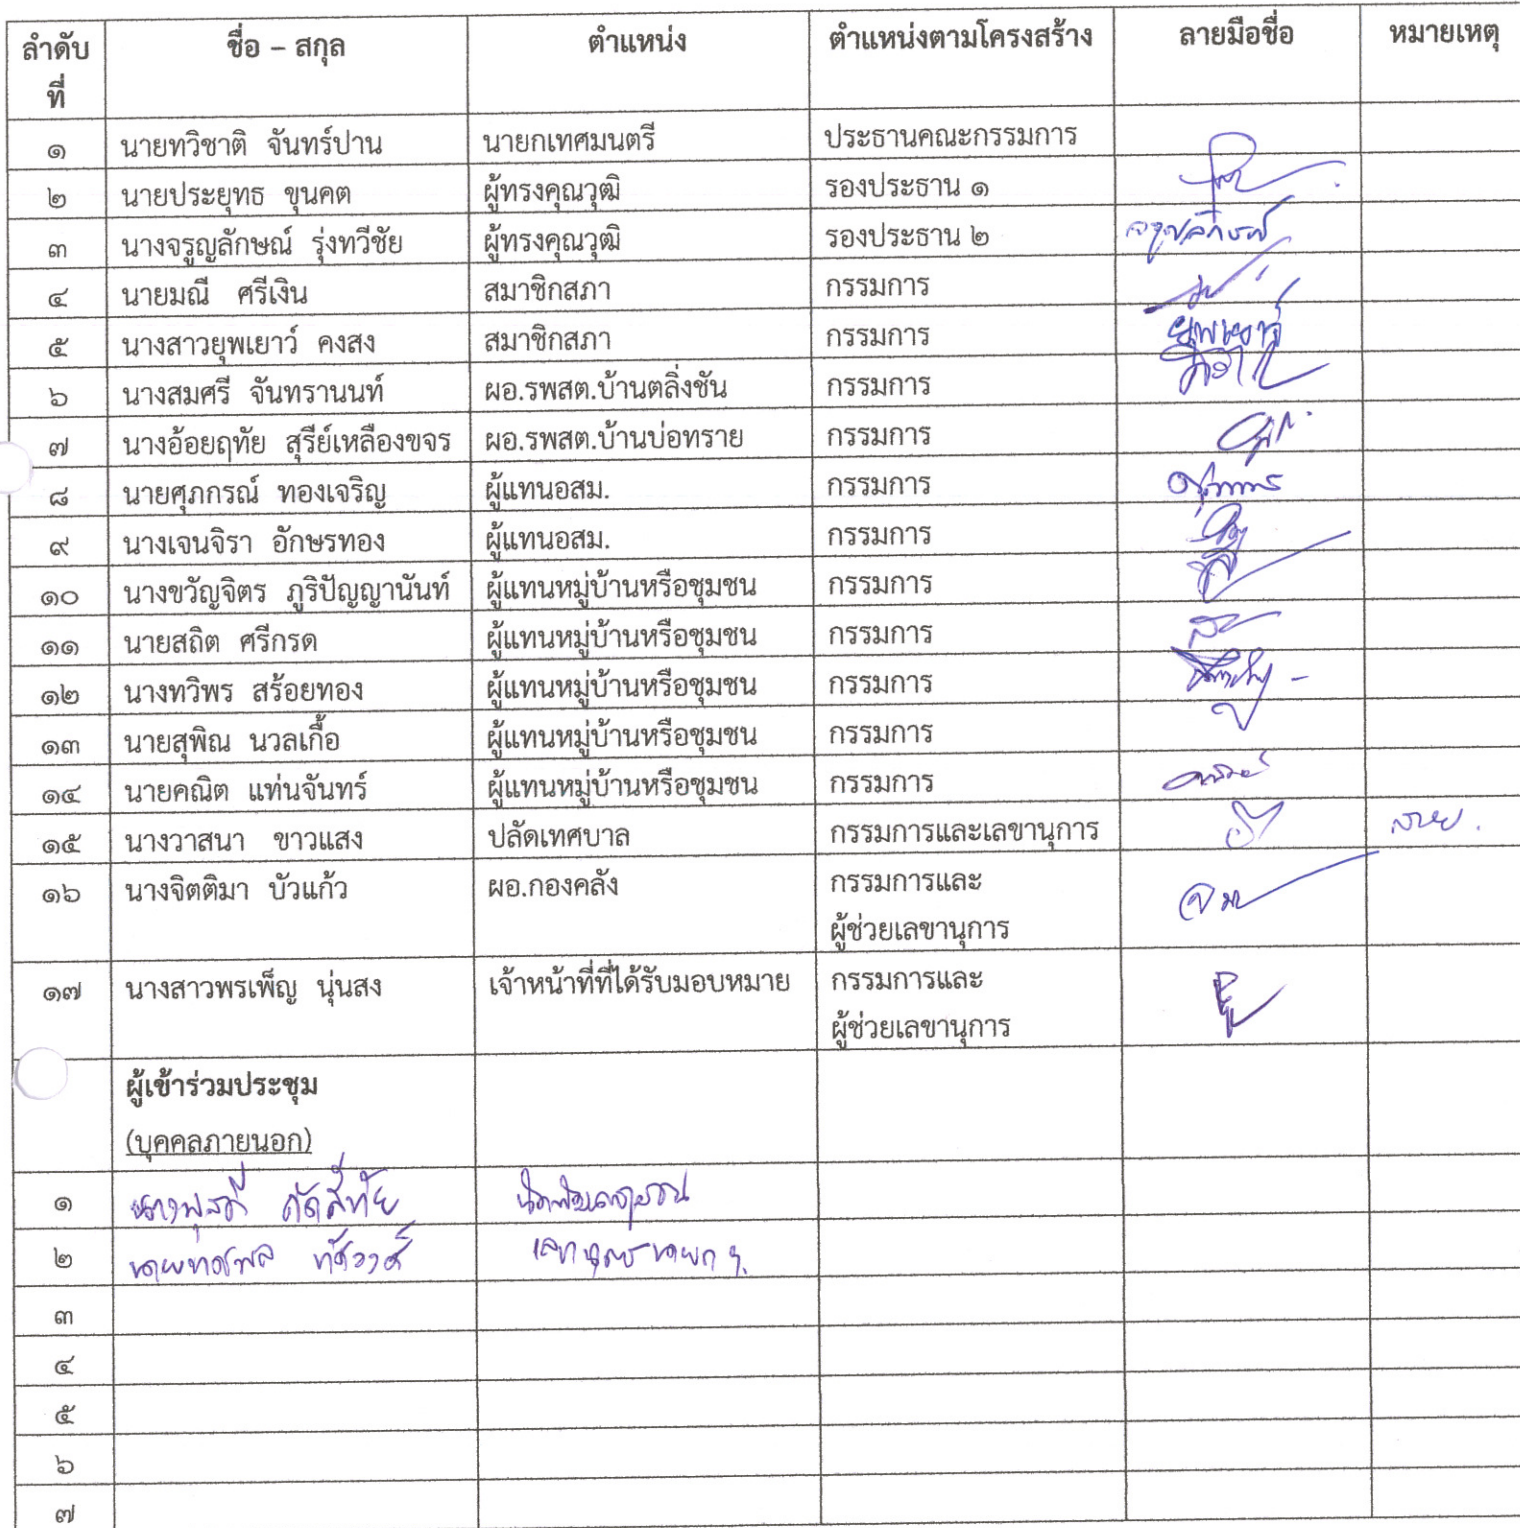 ลำดับที่ ชื่อ – สกุล ตำแหน่ง ตำแหน่งตามโครงสร้าง ลายมือชื่อ หมายเหตุ
๑ นายทวิชาติ จันทร์ปาน นายกเทศมนตรี ประธานคณะกรรมการ
๒ นายประยุทธ ขุนคต ผู้ทรงคุณวุฒิ รองประธาน ๑
๓ นางจรูญลักษณ์ รุ่งทวีชัย ผู้ทรงคุณวุฒิ รองประธาน ๒ จรูญลักษณ์
๔ นายมณี ศรีเงิน สมาชิกสภา กรรมการ
๕ นางสาวยุพเยาว์ คงสง สมาชิกสภา กรรมการ ยุพเยาว์
๖ นางสมศรี จันทรานนท์ ผอ.รพสต.บ้านตลิ่งชัน กรรมการ
๗ นางอ้อยฤทัย สุรีย์เหลืองขจร ผอ.รพสต.บ้านบ่อทราย กรรมการ
๘ นายศุภกรณ์ ทองเจริญ ผู้แทนอสม. กรรมการ
๙ นางเจนจิรา อักษรทอง ผู้แทนอสม. กรรมการ
๑๐ นางขวัญจิตร ภูริปัญญานันท์ ผู้แทนหมู่บ้านหรือชุมชน กรรมการ
๑๑ นายสถิต ศรีกรด ผู้แทนหมู่บ้านหรือชุมชน กรรมการ
๑๒ นางทวิพร สร้อยทอง ผู้แทนหมู่บ้านหรือชุมชน กรรมการ
๑๓ นายสุพิณ นวลเกื้อ ผู้แทนหมู่บ้านหรือชุมชน กรรมการ
๑๔ นายคณิต แท่นจันทร์ ผู้แทนหมู่บ้านหรือชุมชน กรรมการ
๑๕ นางวาสนา ขาวแสง ปลัดเทศบาล กรรมการและเลขานุการ
๑๖ นางจิตติมา บัวแก้ว ผอ.กองคลัง กรรมการและ
ผู้ช่วยเลขานุการ
๑๗ นางสาวพรเพ็ญ นุ่นสง เจ้าหน้าที่ที่ได้รับมอบหมาย กรรมการและ
ผู้ช่วยเลขานุการ
ผู้เข้าร่วมประชุม
(บุคคลภายนอก)
๑
๒
๓
๔
๕
๖
๗